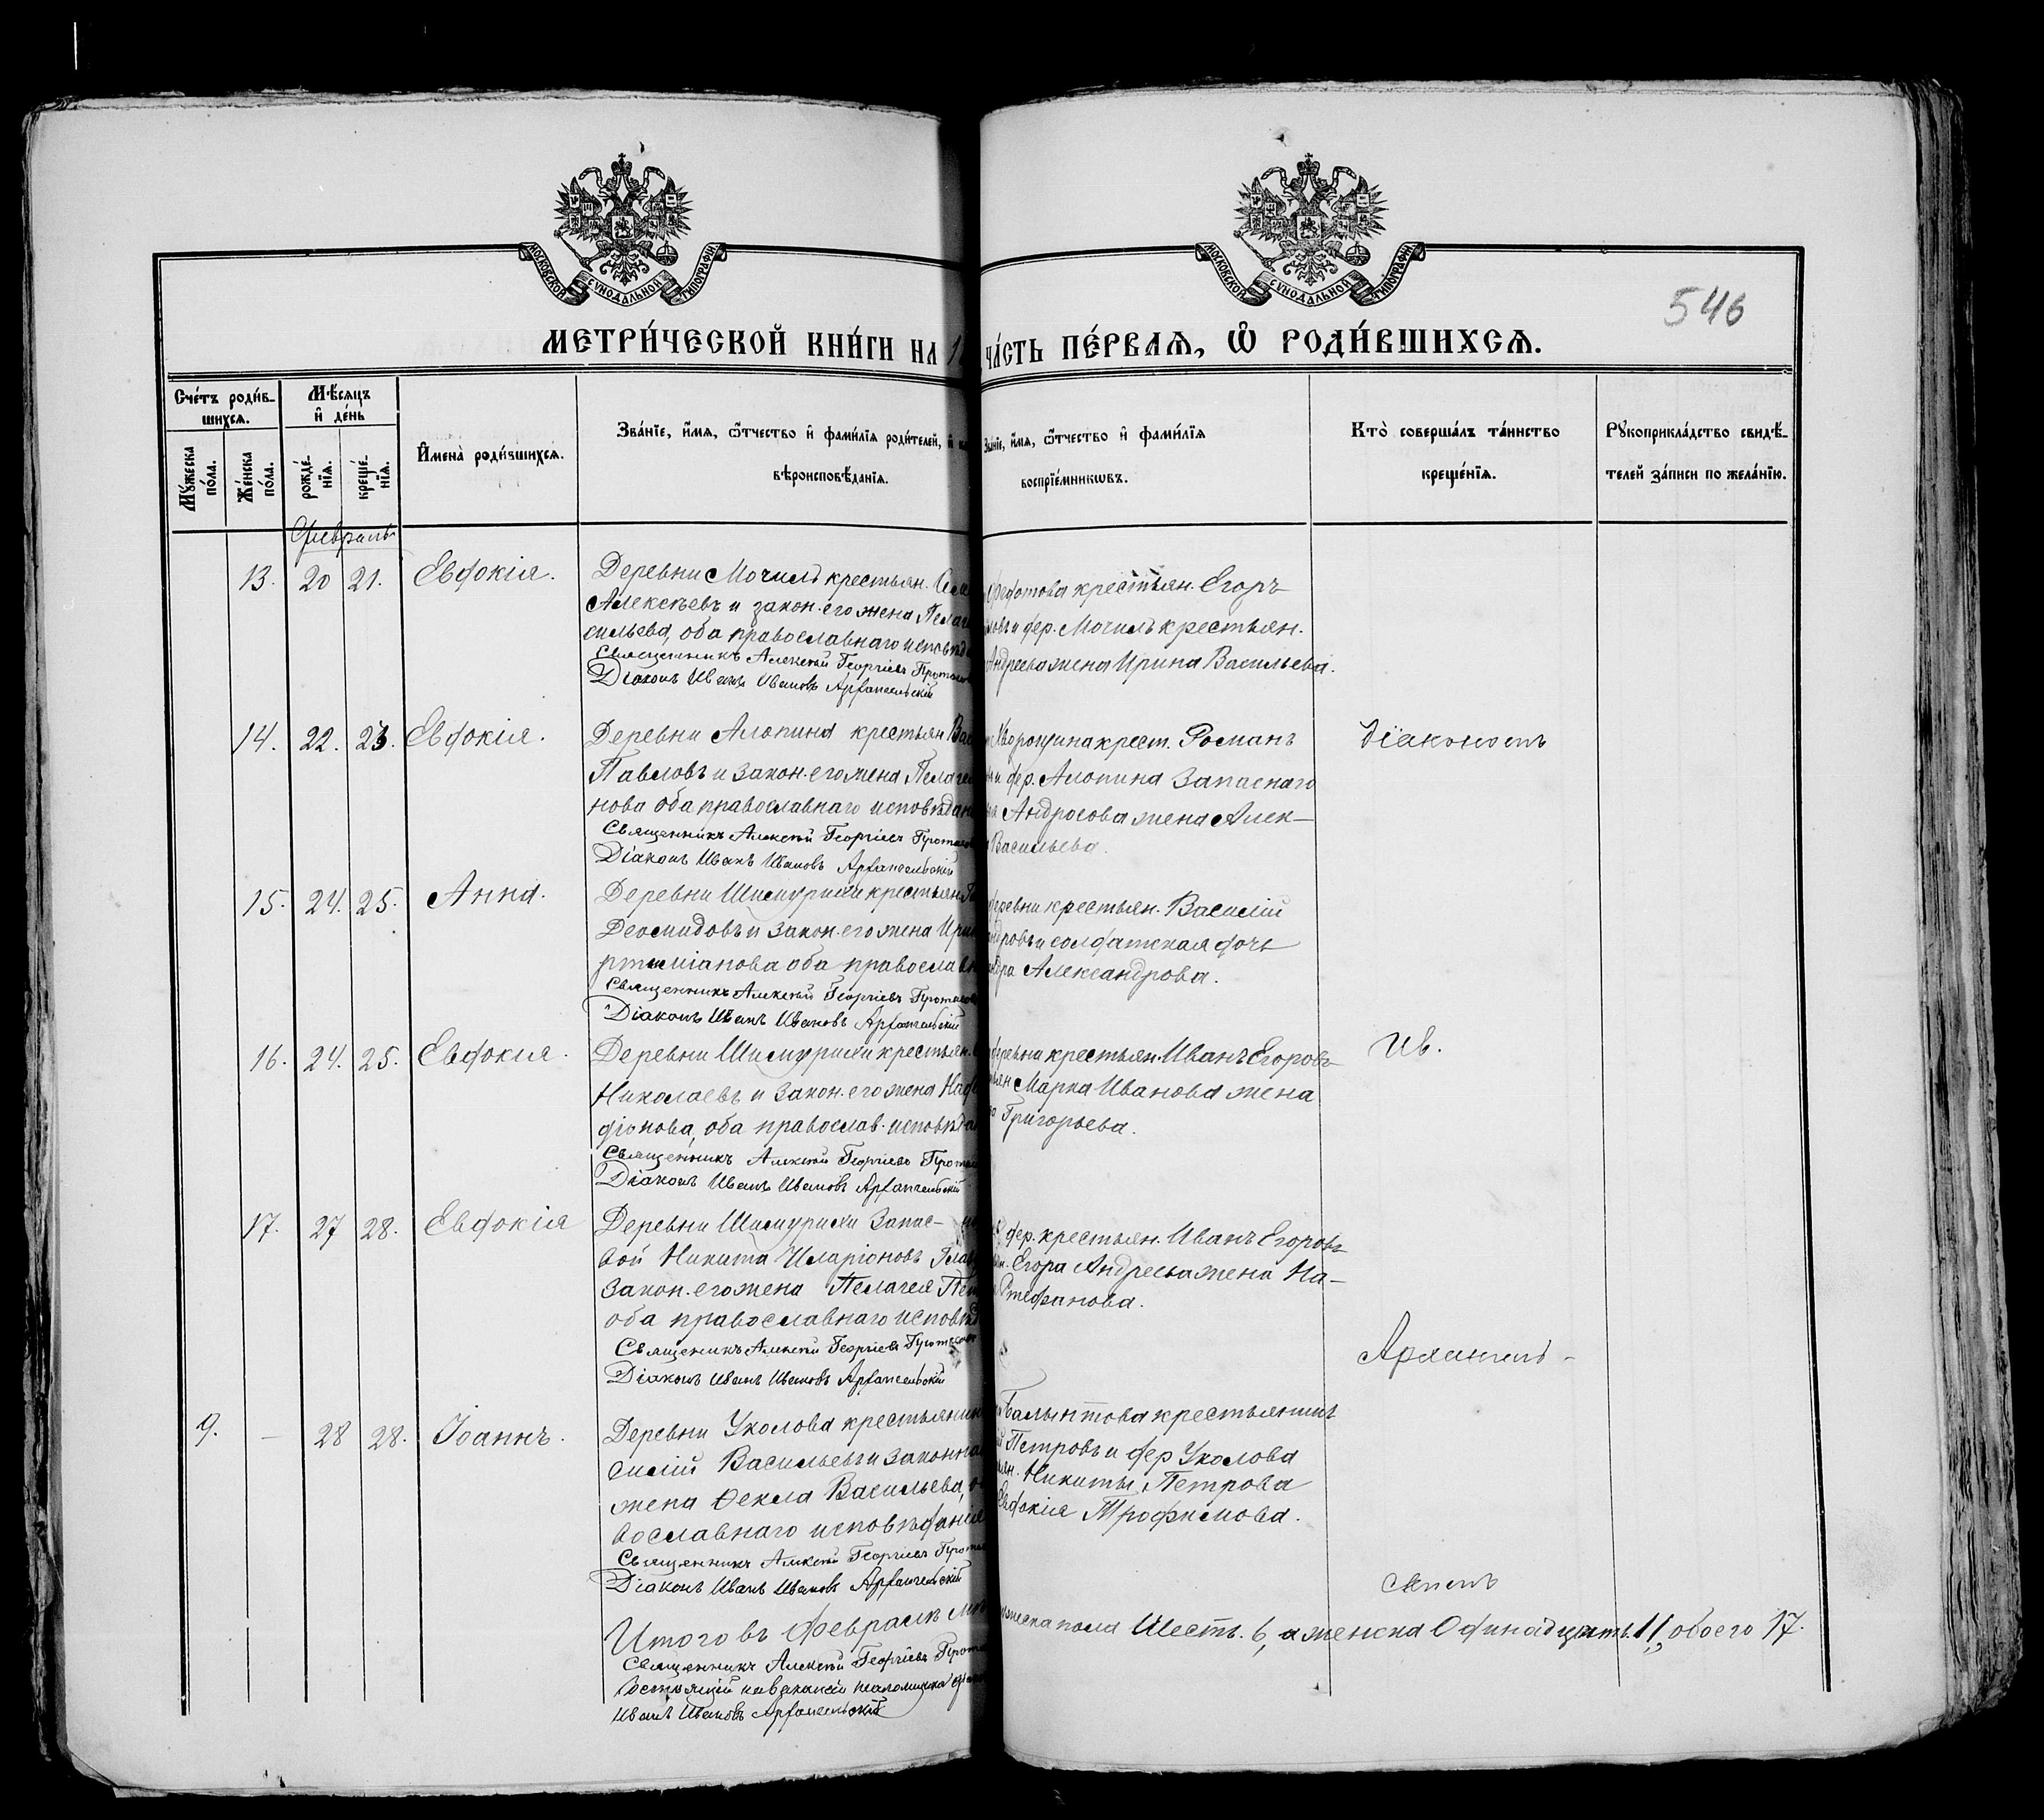 МОСКОВСКОЙ СѴНОДАЛЬНОЙ ТИПОГРАФІИ
МОСКОВСКОЙ СѴНОДАЛЬНОЙ ТИПОГРАФІИ
546
МЕТРИ́ЧЕСКОЙ КНИ́ГИ НА 1
ЧА́СТЬ ПЕ́РВАѦ, Ѿ РОДИ́ВШИХСѦ.
Счétъ роди́в-
шихсѧ.
Мꙋ́жеска по́ла.
Же́нска по́ла.
Мѣ́сѧцъ
и҆ де́нь
рожде́-
нїѧ.
креще́-
нїѧ.
И҆мена̀ роди́вшихсѧ.
Зва́нїе, и҆́мѧ, ѻ҆́тчество и҆ фами́лїѧ роди́телей, и҆
вѣроисповѣ́данїѧ.
Зва́нїе, и҆́мѧ, ѻ҆́тчество и҆ фами́лїѧ
воспрїе́мникѡвъ.
Кто̀ соверша́лъ та́инство
креще́нїѧ.
Рꙋкоприкла́дство свидѣ́-
телей за́писи по жела́нїю.
Февраль
13. 20 21. Евдокія.
Деревни Мочилъ крестьян.
Алексѣевъ и закон. его жена Пелаг
сильева, оба православнаго исповѣд
Священникъ Алексѣй Георгіевъ Протасов
Діаконъ Иванъ Ивановъ Архангельскій
Федотова крестьян. Егоръ
ловъ и дер. Мочилъ крестьян.
Андреева жена Ирина Васильева.
14. 22. 23. Евдокія.
Деревни Алопина крестьян Вас
Павловъ и закон. его жена Пелаге
нова оба православнаго исповѣдан
Священникъ Алексѣй Георгіевъ Протасов
Діаконъ Иванъ Ивановъ Архангельскій
Хворощина крест. Романъ
и дер. Алопина Запаснаго
Андросова жена Алек-
Васильева.
Діаконъ
15. 24. 25. Анна.
Деревни Шишуриха крестьян.
Деомидовъ и закон. его жена Ири
ртеміанова оба православн
Священникъ Алексѣй Георгіевъ Протасов
Діаконъ Иванъ Ивановъ Архангельскій
деревни крестьян. Василій
ндровъ и солдатская дочь
ндра Александрова.
16. 24. 25. Евдокія.
Деревни Шишурихи крестьян.
Николаевъ и закон. его жена Над
діонова, оба православ. исповѣда
Священникъ Алексѣй Георгіевъ Протас
Діаконъ Иванъ Ивановъ Архангельскій
деревни крестьян. Иванъ Егоровъ
Марка Иванова жена
Григорьева.
Ив.
17. 27 28. Евдокія
Деревни Шишурихи Запас-
вой Никита Иларіоновъ
закон. его жена Пелагея Пет
оба православнаго исповѣд
Священикъ Алексѣй Георгіевъ Протасов
Діаконъ Иванъ Ивановъ Архангельскій
дер. крестьян. Иванъ Егоровъ
Егора Андреева жена На-
Стефанова.
Архангель-
9. - 28 28. Іоаннъ.
Деревни Уколова крестьянин
силій Васильевъ и законна
жена Ѳекла Васильева, о
вославнаго исповѣданія
Священникъ Алексѣй Георгіевъ Протас
Діаконъ Иванъ Ивановъ Архангельскій
крестьянинъ
Петровъ и дер Уколова
Никиты Петрова
Евдокія Трофимова.
Итого въ Февралѣ мѣ
мужеска пола Шесть. 6, а женска Одинадцать. 11, обоего 17.
Священникъ Алексѣй Георгіевъ Протас
Состоящій на вакансіи псаломщика
Иванъ Ивановъ Архангельскій